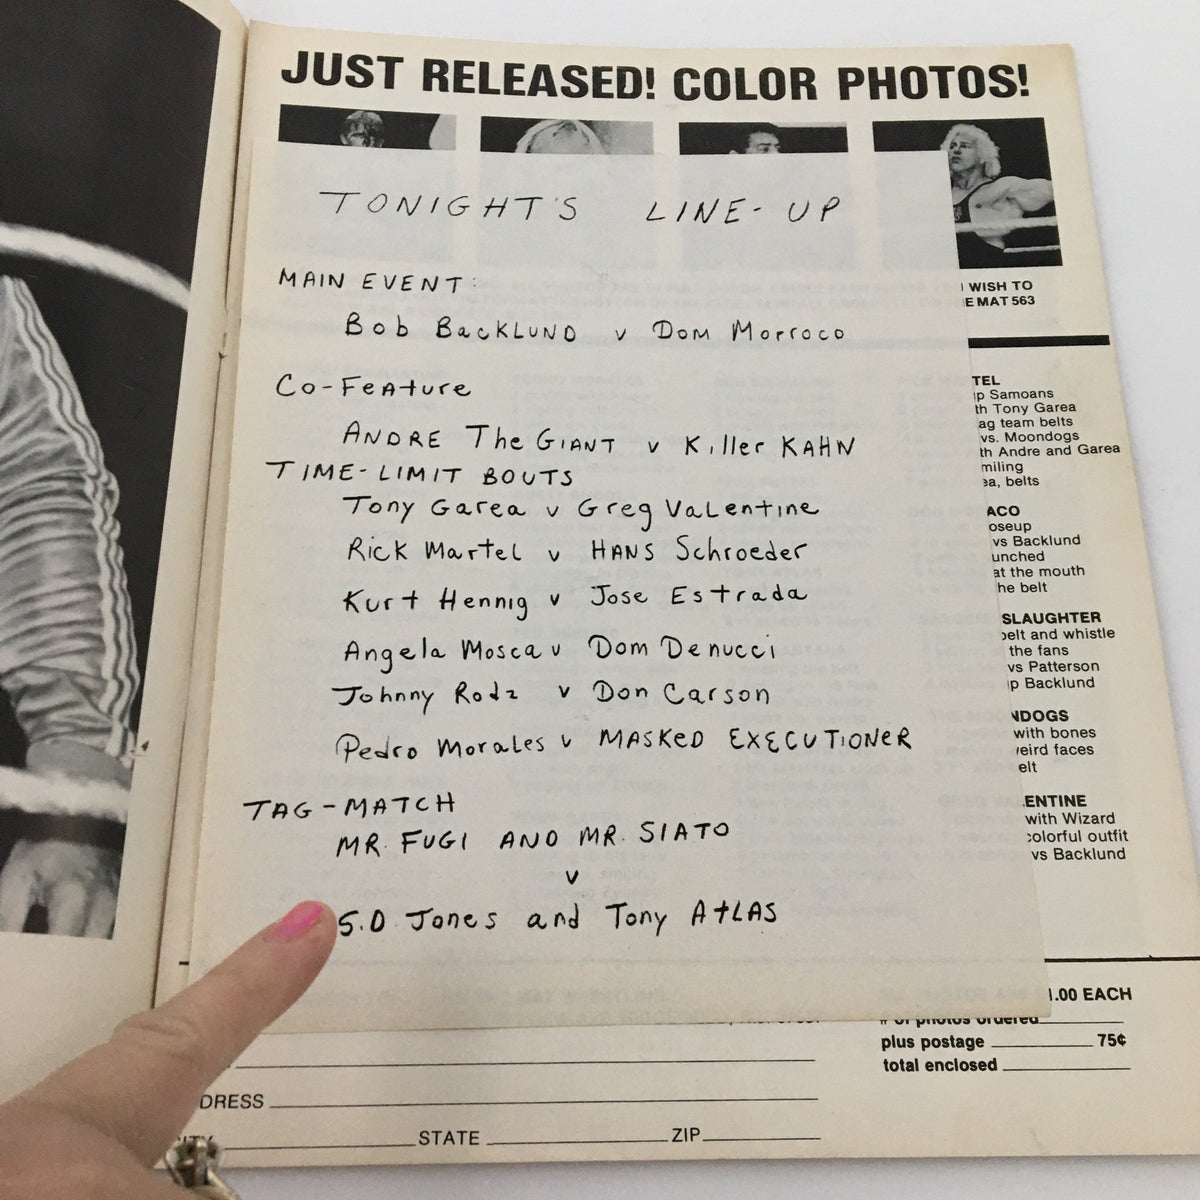 JUST RELEASED! COLOR PHOTOS!
TONIGHT'S LINE-UP
MAIN EVENT:
Bob BACKLUND v Dom Morroco
Co-FeAture
ANDRE The GIANT v Killer KAHN
TIME-LIMIT BOUTS
Tony Garea v Greg Valentine
Rick Martel v HANS Schroeder
Kurt Hennig v Jose Estrada
Angela Mosca v Dom Denucci
Johnny Rodz v Don Carson
Pedro Morales v MASKED EXECUTIONER
TAG-MATCH
MR. FUGI AND MR. SIATO
v
S.D. Jones and Tony AtLAS
WISH TO
E MAT 563
TEL
p Samoans
th Tony Garea
ag team belts
vs. Moondogs
th Andre and Garea
miling
ea, belts
ACO
oseup
vs Backlund
unched
at the mouth
he belt
SLAUGHTER
belt and whistle
the fans
vs Patterson
p Backlund
NDOGS
with bones
eird faces
elt
ENTINE
with Wizard
colorful outfit
vs Backlund
1.00 EACH
# of photos ordered
plus postage 75¢
total enclosed
DRESS
STATE ZIP